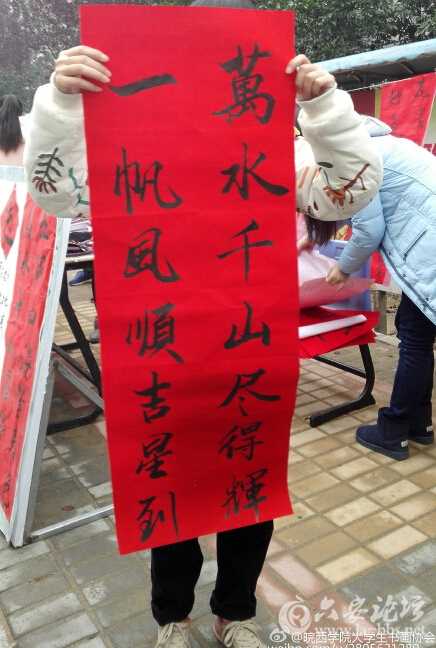 萬水千山尽得輝
一帆風順吉星到
六安论坛
@皖西学院大学生书画协会